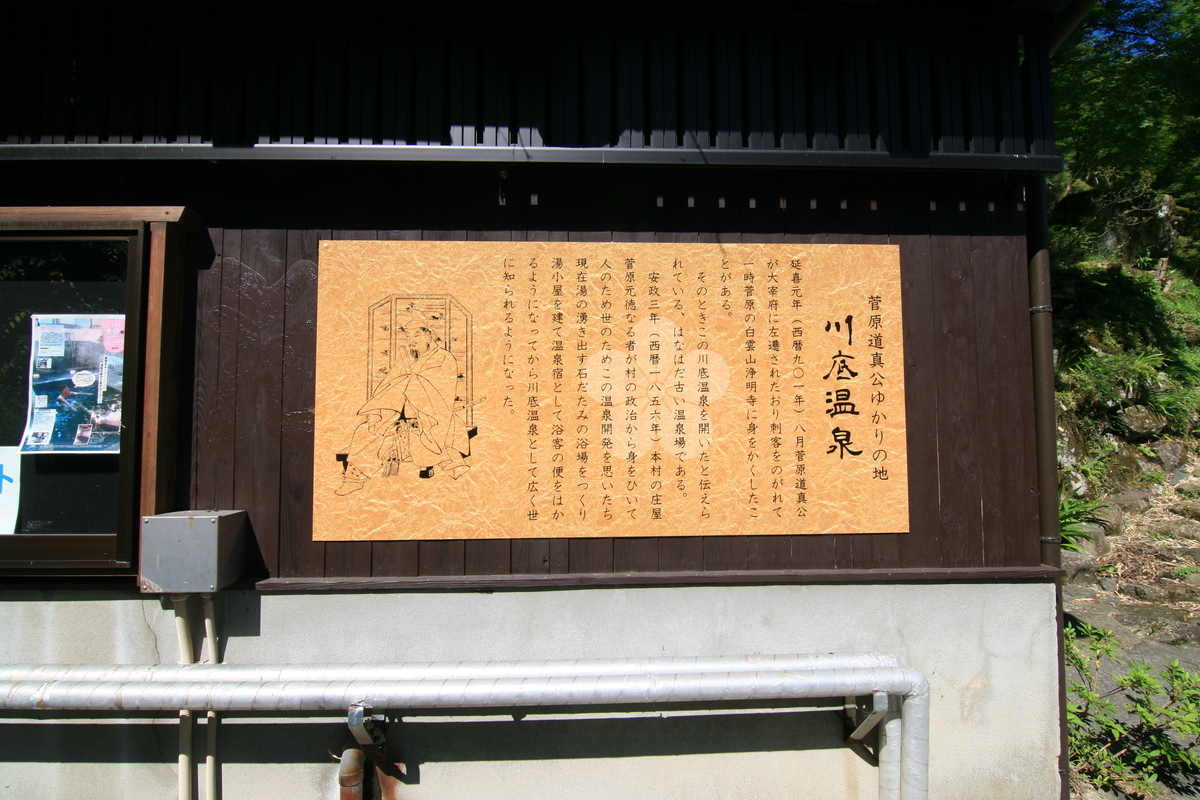 菅原道真公ゆかりの地
川底温泉
延喜元年(西暦九〇一年)八月菅原道真公
が大宰府に左遷されたおり刺客をのがれて
一時菅原の白雲山浄明寺に身をかくしたこ
とがある。
そのときこの川底温泉を開いたと伝えら
れている、はなはだ古い温泉場である。
安政三年(西暦一八五六年)本村の庄屋
菅原元徳なる者が村の政治から身をひいて
人のため世のためこの温泉開発を思いたち
現在湯の湧き出す石だたみの浴場をつくり
湯小屋を建て温泉宿として浴客の便をはか
るようになってから川底温泉として広く世
に知られるようになった。